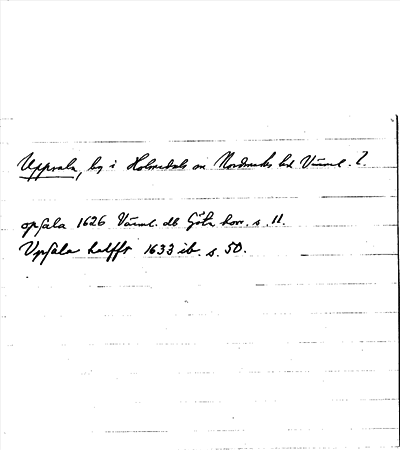 Uppsala, by i Holmedals sn Nordmarks hd Värml. l.
opsala 1626 Värml. db Göta hovr. s. 11.
Vpsala halfft 1633 ib. s. 50.